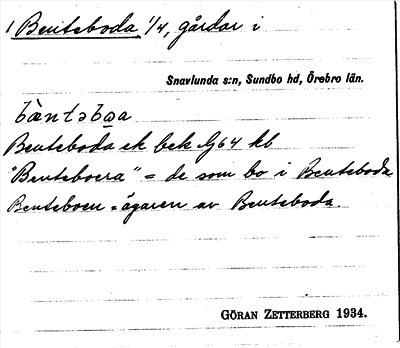 1 Bentseboda 1/4, gårdar i
Snavlunda s:n, Sundbo hd, Örebro län.
bæ̀ntsəbɷa
Bentseboda ek bek G64 kb
"Bentseboera" = de som bo i Bentseboda
Bentseboen = ägaren av Bentseboda.
GÖRAN ZETTERBERG 1934.